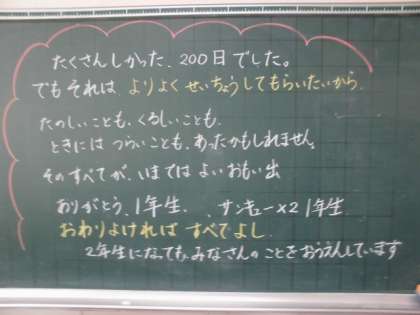 たくさんしかった、200日でした。
でもそれは よりよく せいちょうしてもらいたいから.
たのしいことも、くるしいことも、
ときには つらいことも、あったかもしれません。
そのすべてが、いまでは よいおもい出
ありがとう、1年生、 サンキュー×2 1年生
おわりよければ すべてよし.
2年生になっても、みなさんのことをおうえんしています